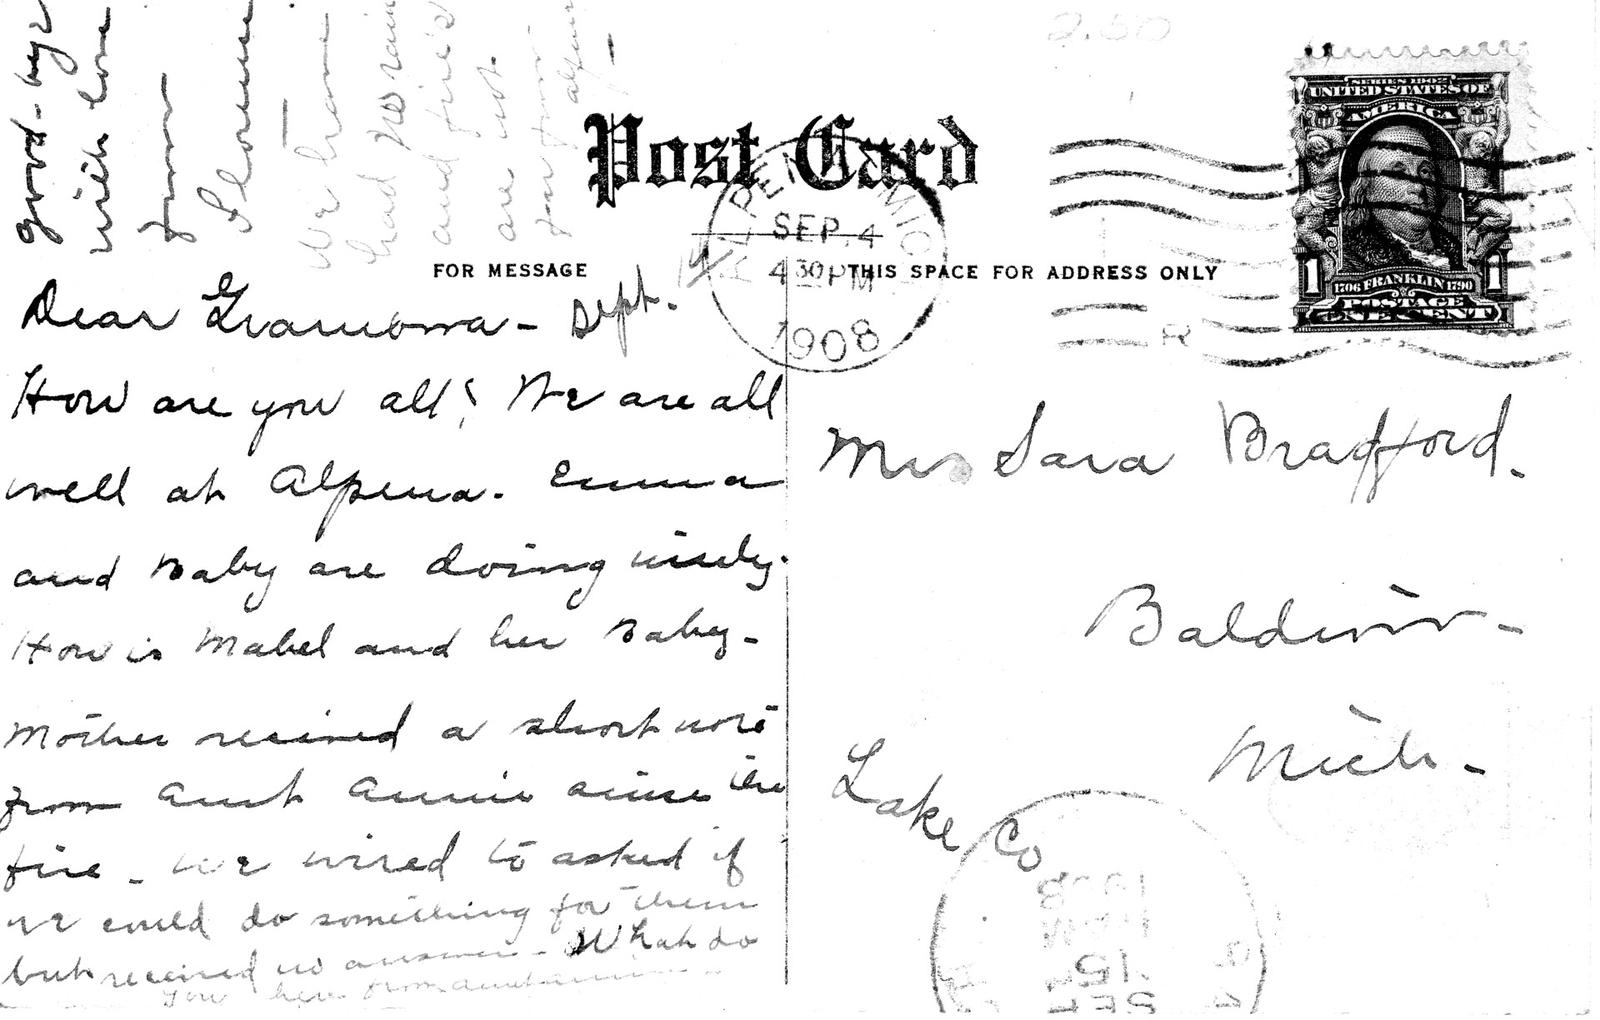 2.50
Post Card
FOR MESSAGE
THIS SPACE FOR ADDRESS ONLY
ALPENA MICH
SEP. 4
4 30 PM
1908
SERIES 1902
UNITED STATES OF
AMERICA
1 1
1706 FRANKLIN 1790
POSTAGE
ONE CENT
Dear Grandma - Sept.
How are you all? We are all
well at Alpena. Emma
and Baby are doing nicely.
How is Mabel and her Baby -
Mother received a short note
from Aunt Annie since the
fire - we wired to asked if
we could do something for them
but received no answer - What do
you hear from aunt annie -
We have
had no rain
and fire's
are not
far from
Good-bye
with love
from
Florence
Mrs Sara Bradford.
Baldwin -
Mich -
Lake Co
SEP
15
1908